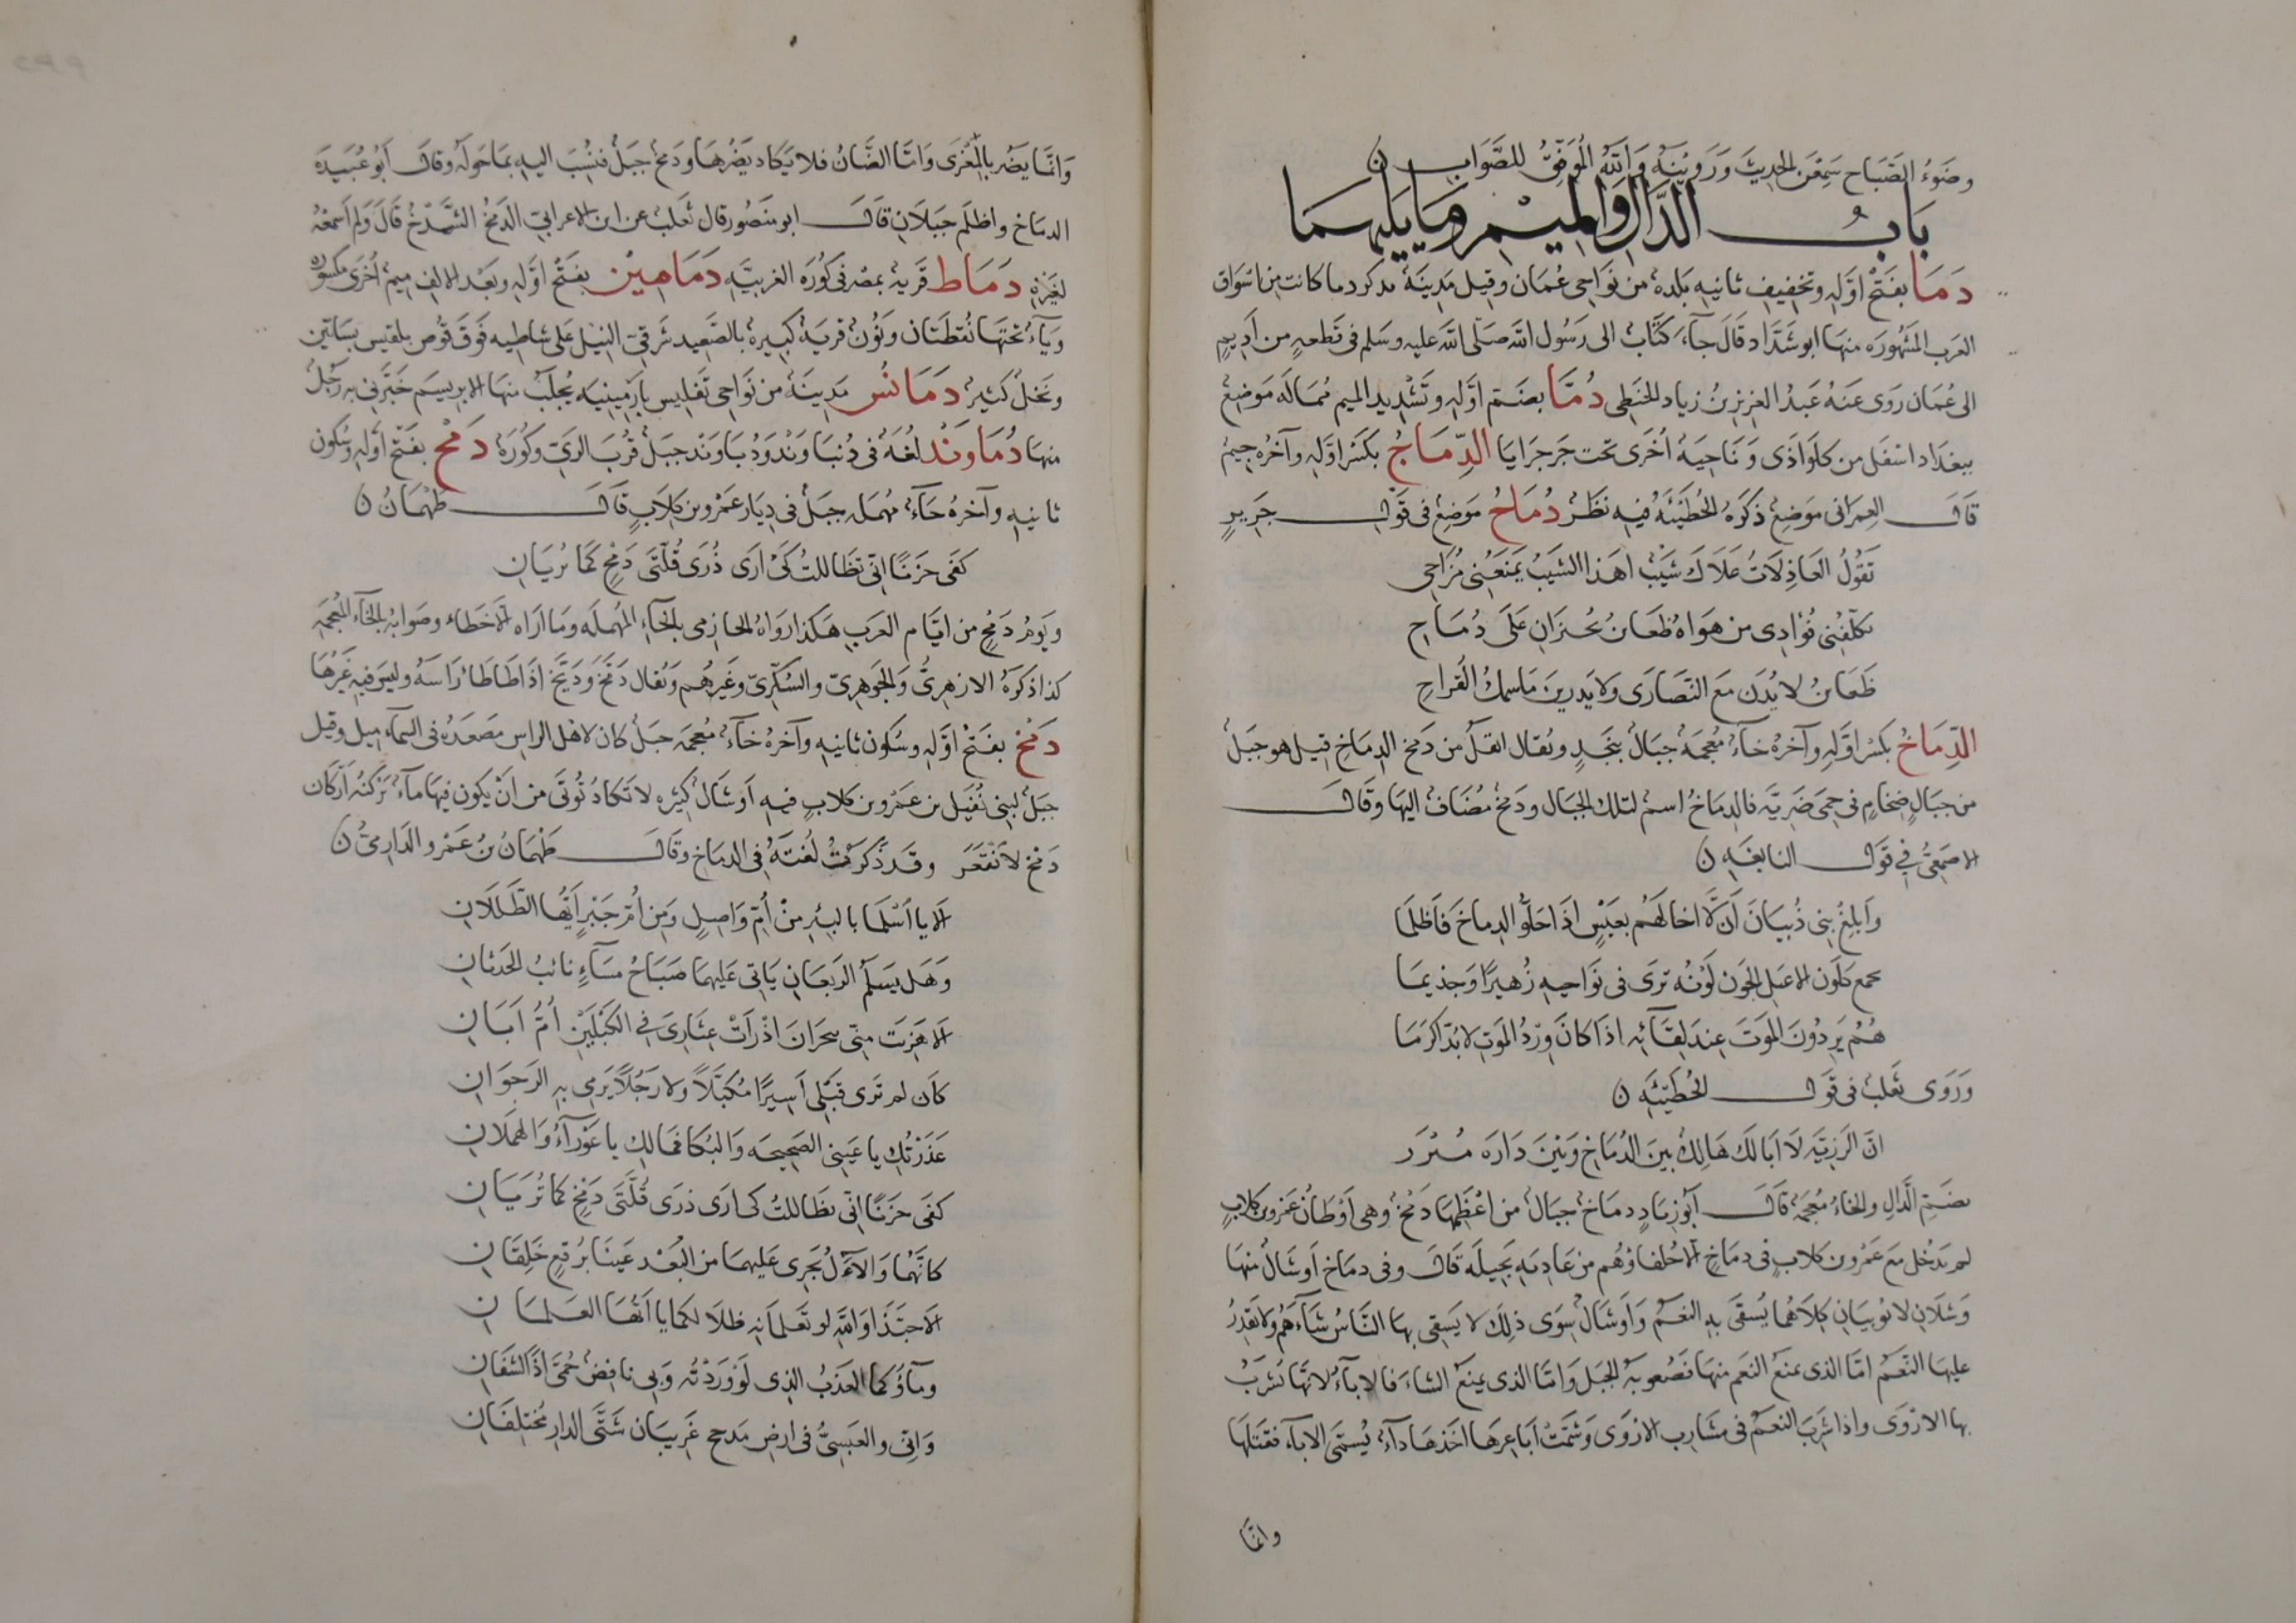 وضَوءُ الصَّبَاح سَمِعْنَ الحديثَ وَرَوَيْنَهُ وَاللَّهُ المُوَفِّقُ للصَّوَابِ ن
بَابُ الدَّالِ وَالمِيْمِ وَمَا يَلِيهِمَا
دَمَا بفَتْحِ اوّلِهِ وتخفِيفِ ثانيهِ بَلدةٌ من نَوَاحِى عُمَان وقِيل مَدِينَةٌ تذكر دما كانت مِنْ اسْوَاق
العَرب المَشهُورَه منهَا ابو شَدَّاد قَالَ جآءَ كتَابُ الى رَسُول اللّه صَلّى اللّه عليه وسَلم فى قَطعهٍ من أَدِيمٍ
الى عُمَان رَوى عَنهُ عَبدُ العَزِيزِ بنُ زيَاد الحَنَطِى دُمَّا بضَم اوّلهِ وتَشْدِيد الميم مُمَالَه مَوضِعٌ
ببغدَاد اسْفَل من كَلوَاذَى وَنَاحِيَهٌ أخرَى تحت جَرجَرَايَا الدِّمَاجُ بكَسْرِ اوّلِهِ وآخرُه جيمٌ
قَالَ العِمرَانى مَوضِعٌ ذكَرَهُ الحُطَيْئَهُ فِيهِ نظَرٌ دُمَاحُ مَوَضعٌ فى قَولِ جَرِيرٍ
تَقُولُ العَاذِلَاتُ عَلَاكَ شَيبٌ اهَذا الشَيبُ يَمنَعُنِى مُزاحِى
يكلّفُنِى فُؤَادِى من هَوَاهُ ظَعَائنُ يُحْزَانِ عَلَى دُمَاحِ
ظَعَائنُ لا يُدْنَ مَعَ النَصَارَى ولا يَدرِينَ مَا سمكُ القَراحِ
الدِّمَاخُ بكَسْرِ اوّلهِ وآخرُهُ خآءٌ مُعجَمهٌ جبَالٌ بنَجدٍ ويُقال اثقلُ من دَمخِ الدِمَاخِ قيل هو جَبَلٌ
من جبَالٍ ضِخَامٍ فى حِمَى ضَرِيَّه فالدِمَاخُ اسمٌ لتلك الجبَال ودَمخٌ مُضَافٌ اليهَا وقَالَ
الاصَمعِيُّ فِي قَولِ النَابغَهِ ن
وَابلِغْ بَنِى ذُبيَانَ أَنْ لَّا اخا لَهُم بعَبْسٍ اذَا حَلُّوا الدِماخَ فَاظلَمَا
بجمع كلَون الاعبَل الجَون لَونُه تَرَى فى نوَاحِيهِ زُهَيرًا وَجذيمَا
هُمُ يَرِدُونَ المَوتَ عِندَ لقَآئهِ اذَا كانَ وِرْدُ المَوتِ لا بُدَّ اكرَمَا
وَرَوَى ثَعلبٌ فى قَولِ الحُطَيْئَهِ ن
انَّ الرَزِيَّهَ لَا ابَا لَكَ هَالكٌ بينَ الدُمَاخِ وَبَيْنَ دَارَه مَنْزَر
بضَمِّ الدّالِ والخاءُ مُعجَمهٌ قَالَ ابُو زيَادٍ دمَاخٌ جبَالٌ من اعْظَمِهَا دَمْخٌ وهى اوْطَانُ عَمْرو بن كلابٍ
لم يدخُل مَعَ عَمْرو بن كلابٍ فى دمَاخٍ الّا حُلفاؤهُم من عَاديَهِ بَجِيلَه قَالَ وفى دمَاخ اَوشَالٌ منهَا
وَشلَانِ لا نُوبيَانِ كلَاهُما يُسقَى بهِ النعَمُ وَاَوشَالٌ سِوَى ذلِكَ لا يَسقِى بهَا النَّاسُ شَآءَهُم ولا تَقدِرُ
عليهَا النعَمُ امّا الذى يمنعُ النعَم منهَا فَصُعوبَهُ الجَبل وَامّا الذى يمنعُ الشاءَ فالابآءُ لانهَّا تشرَبُ
بها الارْوَى واذا شَرِبَ النعَمُ فى مشَارب الارْوَى وَشَمَّتْ أبَاعِرهَا اخَذهَا دآءٌ يُسَمَّى الابآء فقتَلهَا
وانمّا
وَانمَّا يضُر بالمعْزَى وَامَّا الضَّانُ فلا يَكَاد يَضُرّهَا ودَمخٌ جبَلٌ فنُسِبَ اليهِ بمَا حَولَهُ وقالَ ابُو عُبَيدَه
الدمَاخ واظلَم جَبَلَانِ قَالَ ابو منصُور قال ثَعلبٌ عن ابن الاعرابيّ الدَمْخُ الشَّدْخُ قَالَ وَلم اَسمعْهُ
لغَيْرِهِ دَمَاط قَريهٌ بمصْر فى كُورَه الغربيّه دَمَامِيْنُ بفَتحِ اوّلهِ وبَعْد الالِف مِيمٌ اُخرَى مكسوره
وَيآءٌ تحتهَا نُقطتَان ونُونٌ قريَهٌ كبيرهٌ بالصَّعِيد شَرقىّ النِيل عَلى شاطِيه فَوقَ قُوص يلقيس بسَاتين
ونخلٌ كثِيرٌ دَمَانِسُ مَدِينَهٌ من نوَاحِى تَفلِيس بارْمِينيَه يُجلَبُ منهَا الابريسَم خَبّرنى به رَجُلٌ
منهَا دُمَاوَند لُغَهٌ فى دُنبَاوَند وَدُبَاوَند جبَلٌ قُربَ الرَيّ وكُورَهٌ دَمْحٌ بفَتح اوّلِهِ وسُكون
ثانيهِ وآخرهُ حَآءٌ مُهمَله جبَلٌ فى دِيَار عَمْرو بن كلَابٍ قَالَ طَهْمَانُ ن
كفَى حزَنًا انّى تطَاللتُ كَىْ ارَى ذُرَى قُلّتَى دَمْحٍ كمَا تُريَانِ
ويَومُ دَمْحٍ من ايّام العَربِ هَكذا روَاهُ الحازِمى بالحَآءِ المُهمَله ومَا ارَاه الّا خَطاءً وصَوابهُ بالخآءِ المُعجمَهِ
كذا ذكَرَهُ الازهرِيُّ وَالجَوهرِيّ والسُكّرِيّ وغَيرهُم وَيُقال دَمَّخَ وَدَبَّخَ اذَا طَاطَأ رَاسَهُ وليسَ فيهِ غَيرُهَا
دَمْخٌ بفَتحِ اوّلهِ وسكون ثانيهِ وآخرهُ خآءٌ مُعجمَه جبَلٌ كان لاهْل الراسِ مَصعَدهُ فى السمآءِ مِيل وقيل
جبَلٌ لبَنِى نُفَيل بن عَمْرو بن كلابٍ فيهِ اَوشَالٌ كثيره لا تكادُ تُوتَى من انْ يكون فيهَا مآءٌ تَركَنُه اَركان
دَمْخ لا تَنْقَعَر وقَد ذكَرتُ لُغتَهُ فِى الدمَاخِ وقَالَ طَهْمَانُ بنُ عَمْرو الدَارِمىُّ ن
اَلا يا اسْلمَا بالبيْرِ مِنْ أُمِّ وَاصِلٍ وَمِن اُمّ جَبْرٍ اَيُّهَا الطَلَلَانِ
وَهَل يسَلَم الرَبعَانِ يَاتِى عَلَيهمَا صَبَاحُ مَسَآءٍ نائبُ الحَدثانِ
اَلا هَزِئَت مِنّى بنجرَانَ اذْ رَاَتْ عِثَارِى فِي الكَبْلَيْنِ اُمُّ ابَانِ
كاَن لم ترَى قَبْلِى اَسِيْرًا مُكَبَّلاً ولا رَجُلًا يُرمِى بهِ الرَجوَانِ
عَذَرتُكِ يا عَينِى الصَحِيحَه وَالبُكا فمَا لكِ يا عَورَآءُ وَالهمَلانِ
كفَى حزَنًا انّى تطَاللتُ كى ارَى ذرَى قُلّتَى دَمْخٍ كما تُرَيَانِ
كانّهُما وَالآلُ يُجَرى عَلَيهمَا من البُعْد عَينَا بُرقعٍ خَلِقَانِ
اَلا حبّذَا وَاللّهِ لو تَعلمَانِهِ ظلَالكمَا يا اَيُّهَا العَلمَانِ
ومآؤُكمَا العَذبُ الذِى لَوْ وَرَدْتُه وَبِى نافِضٌ حُمَّى اذًا لشفَانِ
وَانِّى والعَبسِيُّ فى ارضِ مَدحجٍ غَرِيبَان شَتَّى الدار مُختلِفَانِ